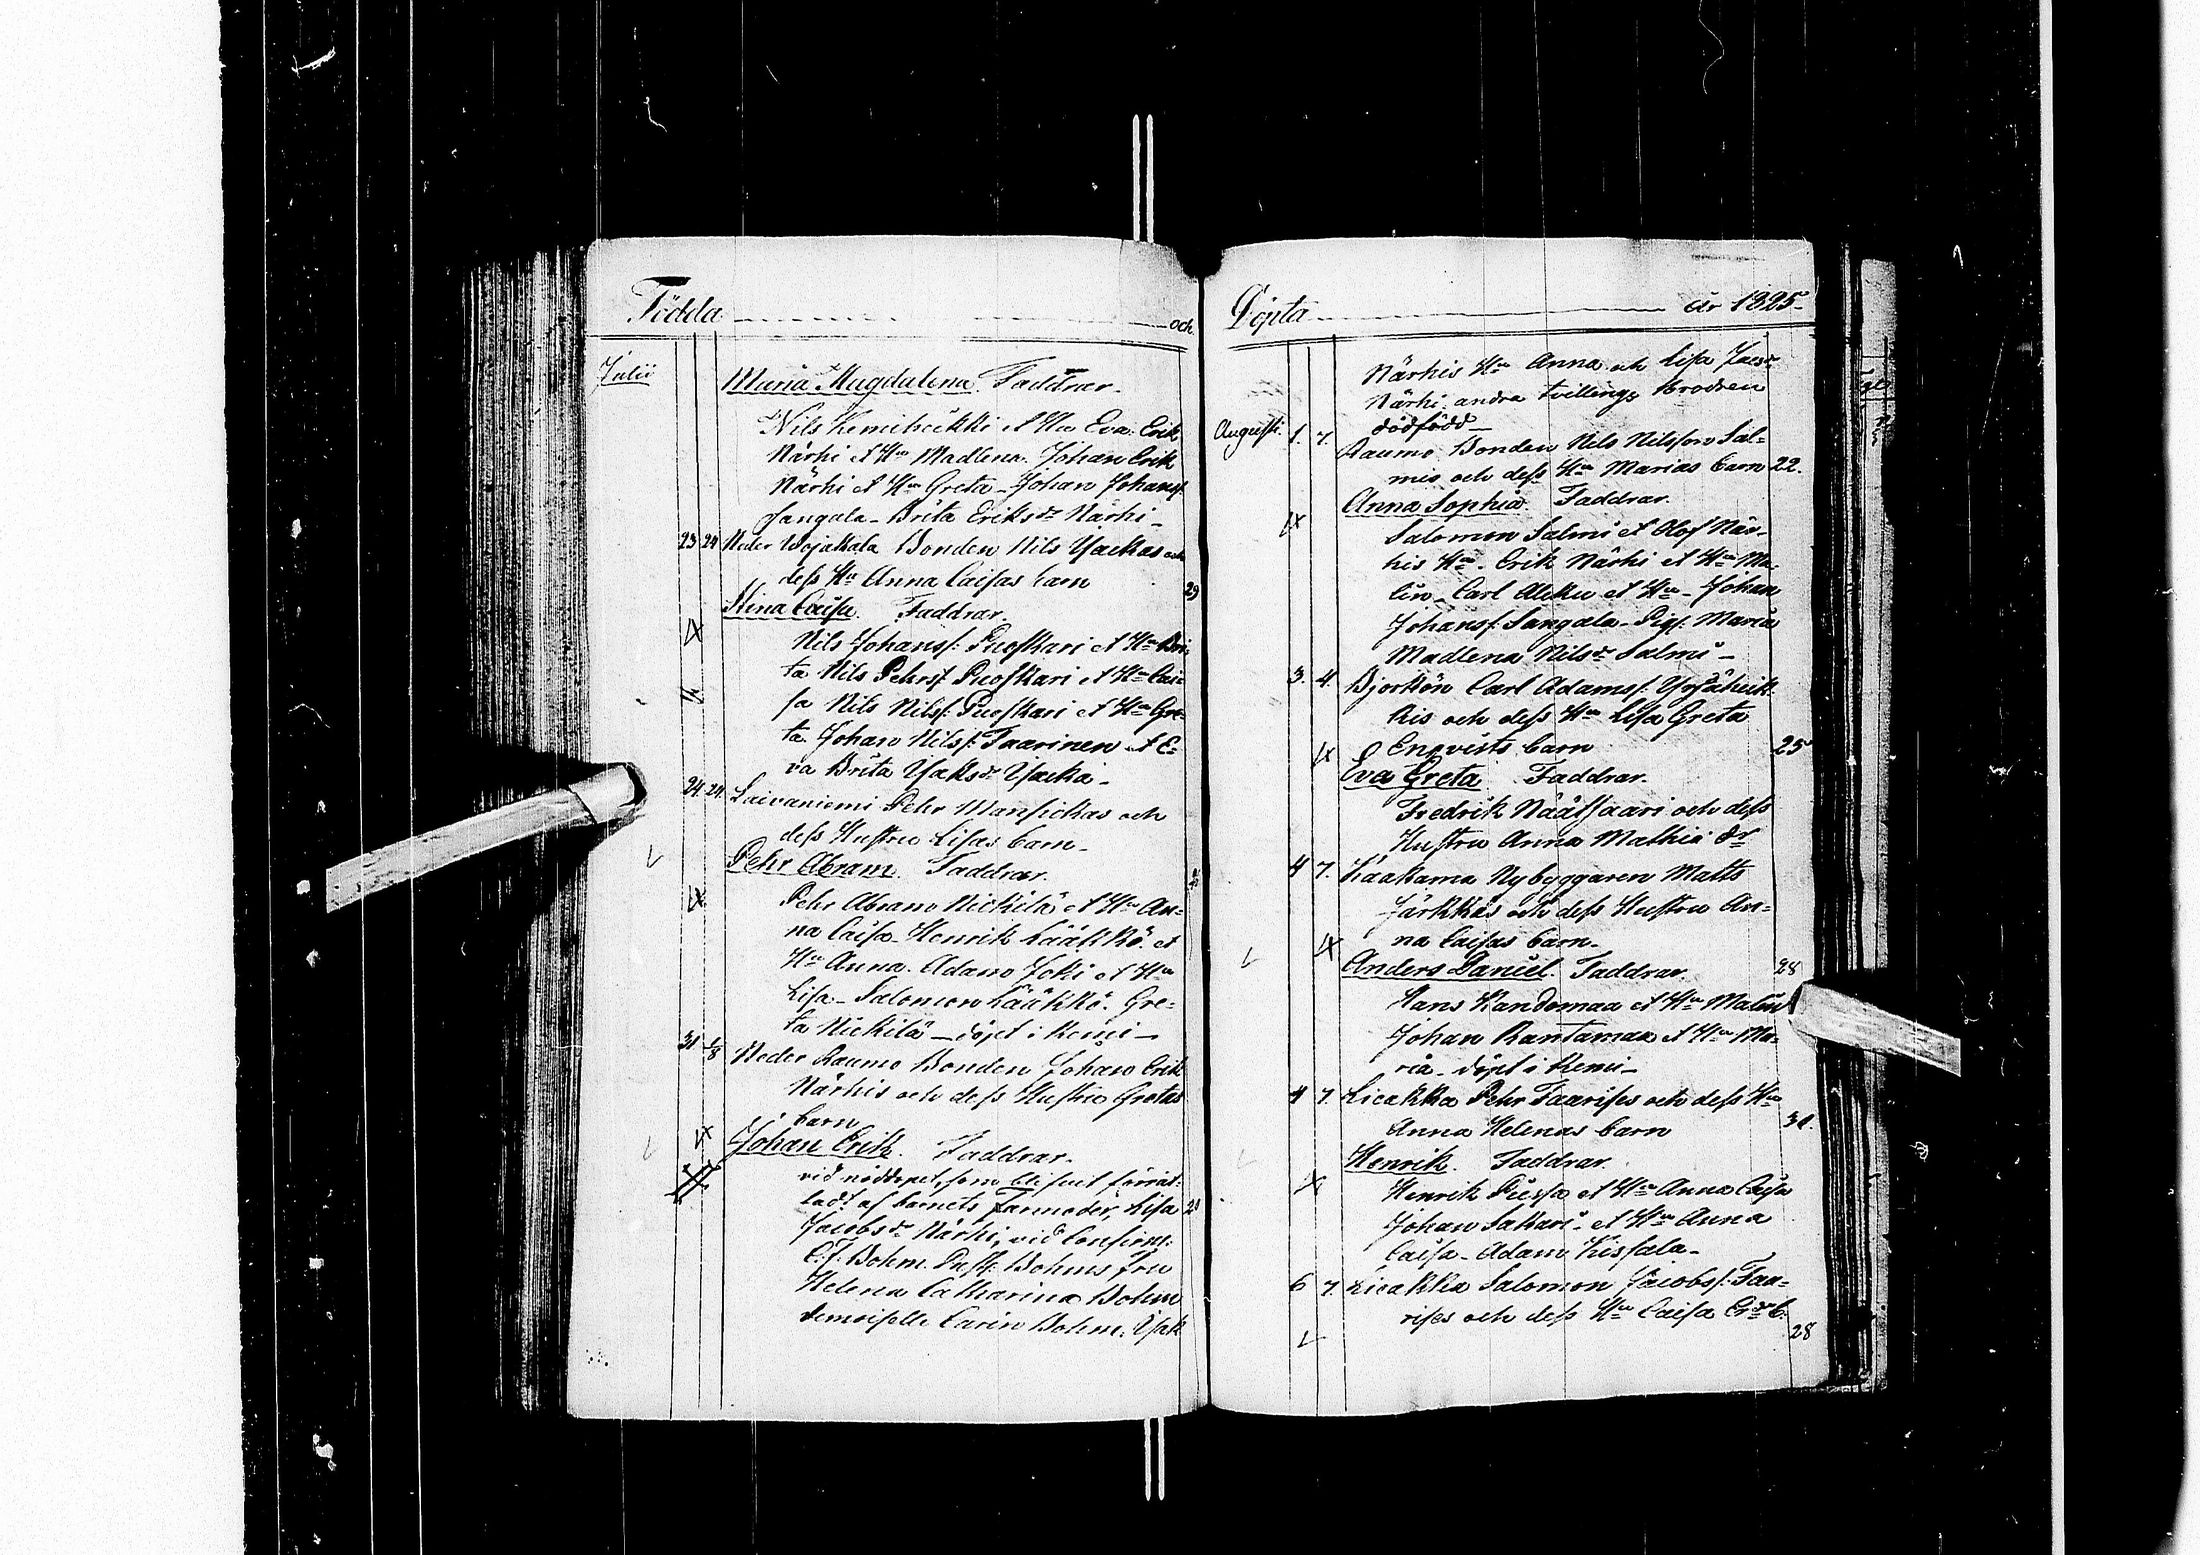 Födda och
Julii
Maria Magdalena. Faddrar.
Nils Kemiheikki et Hu Eva. Erik
Närhi et Hu Madlena. Johan Erik
Närhi et Hu Greta - Johan Johanss.
Sangala - Brita Eriksdr Närhi -
23 24 Neder Wojakala Bonden Nils Yackas och
dess Hu Anna Caisas barn 29
Stina Caisa. Faddrar.
Nils Johanss: Puoskari et Hu Bri-
ta Nils Pehrss Puoskari et Hu Cai-
sa Nils Nilss: Puoskari et Hu Gre-
ta. Johan Nilss: Taarinen et E-
va Brita
24. 24. Laivaniemi Pehr Mansickas och
dess Hustru Lisas barn -
Pehr Abram. Faddrar.
Pehr Abram Nickilä et Hu An-
na Caisa - Henrik Lääkkö et
Hu Anna. Adam Joki et Hu
Lisa - Salomon Lääkkö. Gre-
ta Nickilä - döpt i Kemi -
31 1/8 Neder Raumo Bonden Johan Erik
Närhis och dess Hustru Gretas
barn
Johan Erik. Faddrar.
vid nöddopet, som blifvit förrät-
tadt af barnets Farmoder, Lisa
Jacobsdr Närhi, vid Confirm:
C. F. Bohm. Bohms fru
Helena Catharina Bohm
demoiselle Carin Bohm.
Döpta år 1825
Närhis Hu Anna och Lisa Jacsdr
Närhi. andra tvillings brodren
dödfödd -
Augusti. 1. 7. Raumo Bonden Nils Nilsson Sal-
mis och dess Hu Marias barn 22.
Anna Sophia. Faddrar.
Salomon Salmi et Olof När-
his Hu. Erik Närhi et Hu Ma-
lin - Carl et Hu - Johan
Johanss: Sangala - Pig. Maria
Madlena Nilsdr Salmi -
3. 4. Björkön Carl Adamss:
kis och dess Hu Lisa Greta
Enqvists barn 25
Eva Greta. Faddrar.
Fredrik Näätsaari och dess
Hustru Anna Mathiædr
4 7. Kaakama Nybyggaren Matts
Järkkäs och dess Hustru An-
na Caisas barn -
Anders Daniel. Faddrar. 28
Hans Randamaa et Hu Malin
Johan Rantamaa et Hu Ma-
ria - döpt i Kemi -
4 7. Liedakka Pehr Taarises och dess Hu
Anna Helenas barn 31.
Henrik. Faddrar.
Henrik et Hu Anna Caisa
Johan Sakari et Hu Anna
Caisa - Adam Kissala -
6 7. Salomon Jacobss: Taa-
rises och dess Hu Caisa b.
28